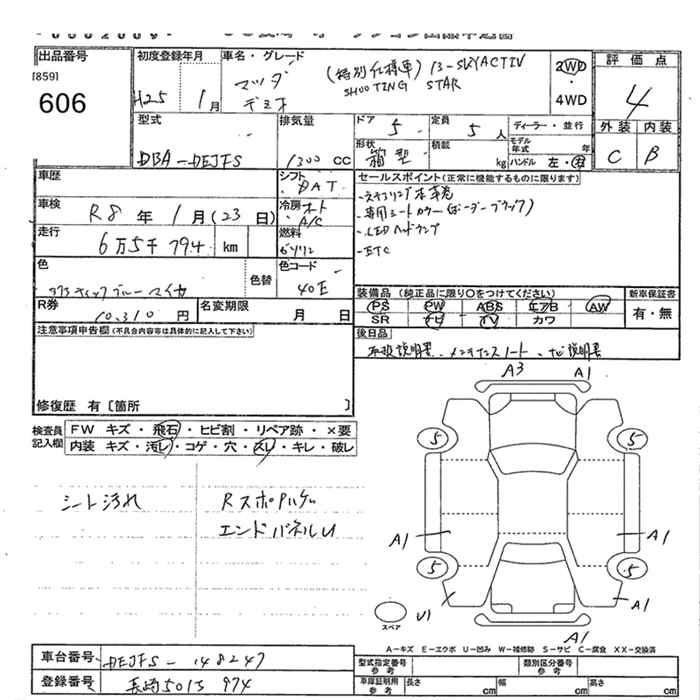 出品番号
[859]
606
初度登録年月
H25 1月
車名・グレード
マツダ (特別仕様車) 13-SKYACTIV
デミオ SHOOTING STAR
2WD・4WD
評価点
4
外装 内装
C B
型式
DBA-DEJFS
排気量
1300 CC
ドア 5
定員 5人
ディーラー・並行
形状 箱型
積載 kg
モデル年式 年
ハンドル 左・右
車歴
シフト
DAT
セールスポイント(正常に機能するものに限ります)
車検 R8年1月(23日)
冷房 オート A/C
・ステアリング本革巻
・LEDヘッドランプ
・ETC
走行 6万5千794 km
燃料 ガソリン
色
色替
色コード 40E
R券 10,310円
名変期限 月 日
装備品(純正品に限り○をつけてください)
PS PW ABS エアB AW
SR ナビ TV カワ
新車保証書
有・無
注意事項申告欄(不具合内容等は具体的に記入して下さい)
後日品
取扱説明書、メンテナンスノート、ナビ説明書
修復歴 有〔箇所 〕
検査員記入欄
FW キズ・飛石・ヒビ割・リペア跡・×要
内装 キズ・汚レ・コゲ・穴・スレ・キレ・破レ
シート汚れ
エンドパネルU
A3 A1
5 5
A1 A1
5 5
U1 A1
A1
スペア
A-キズ E-エクボ U-凹み W-補修跡 S-サビ C-腐食 XX-交換済
車台番号 DEJFS-148247
登録番号 長崎501ろ 974
型式指定番号 参考
類別区分番号 参考
車庫証明用 参考 長さ cm 幅 cm 高さ cm